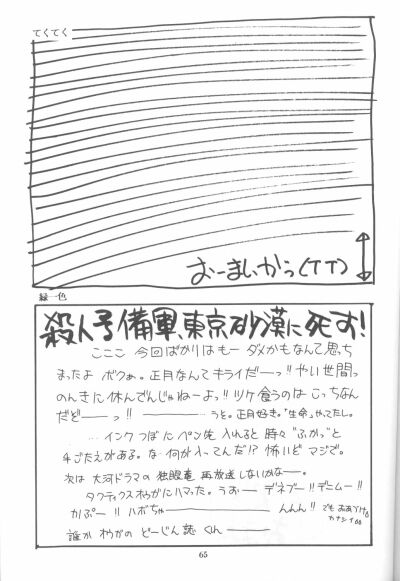 てくてく
おーまいがっ(TT)
緑一色
殺人予備軍東京砂漠に死す!
こここ 今回ばかりはもー ダメかもなんて思っち
まったよ ボクぁ。正月なんてキライだーっ!! やい世間っ
のんきに休んでんじゃねーよっ!! ツケ食うのは こっちなん
だど──っ!! ────── うそ。正月好き。"生命"やってたし。
…インクつぼに ペン先 入れると 時々 "ふかっ"と
手ごたえがある。な 何か入ってんだ!? 怖いど マジで。
次は 大河ドラマの 独眼竜 再放送しないかなー。
タクティクスオウガにハマった。うおー デネブー!! デニームー!!
カぷー!! ハボちゃ────── んんん!! でも
カナシイ
誰か オウガの どーじん誌 くれ ────
65